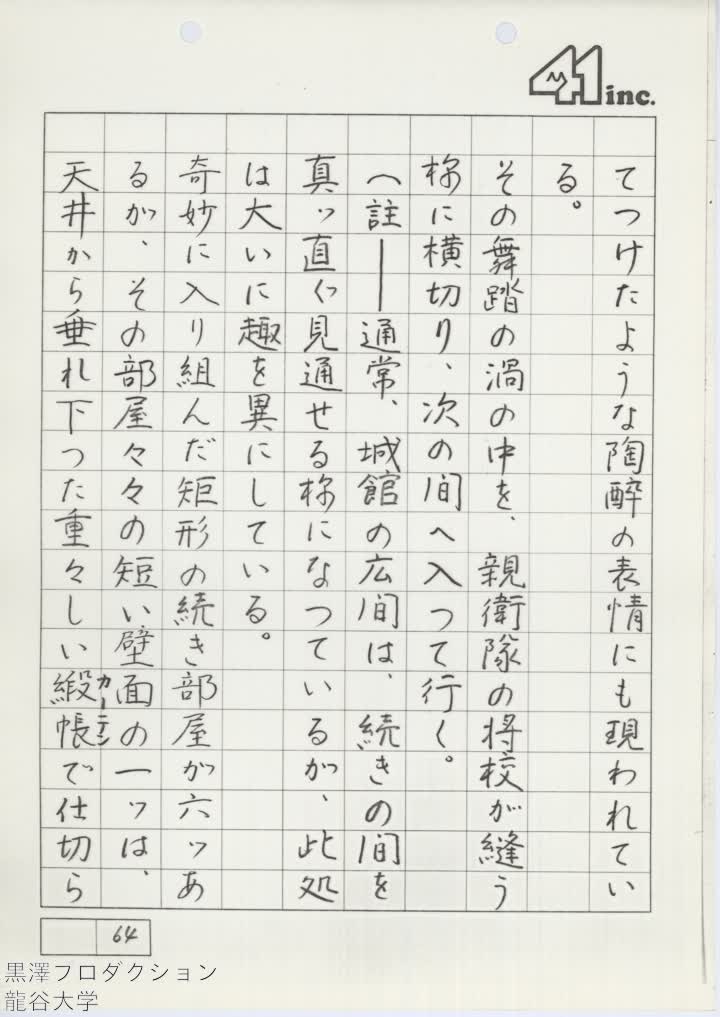 41 inc.
てつけたような陶酔の表情にも現われてい
る。
その舞踏の渦の中を、親衛隊の将校が縫う
様に横切り、次の間へ入つて行く。
(註――通常、城館の広間は、続きの間を
真ッ直ぐ見通せる様になつているが、此処
は大いに趣を異にしている。
奇妙に入り組んだ矩形の続き部屋が六ッあ
るが、その部屋々々の短い壁面の一ッは、
天井から垂れ下つた重々しい緞帳で仕切ら
カーテン
64
黒澤プロダクション
龍谷大学